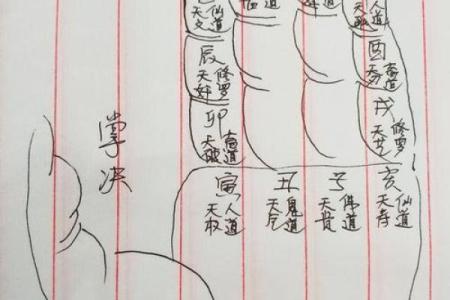 仙道
天文
道
人道
辰 修罗
天奸
酉
道
掌决
卯 畜道
天破
戌 修罗
天艺
寅 丑 子 亥
天权 人道 天厄 鬼道 天贵 佛道 天寿 仙道